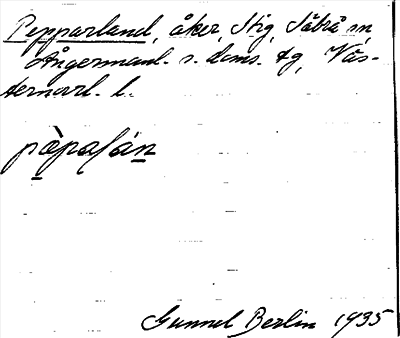 Pepparland, åker, Stig, Säbrå sn,
Ångermanl. s. doms. tg, Väs-
ternorrl. l.
pòpaḷán
Gunnel Berlin 1935